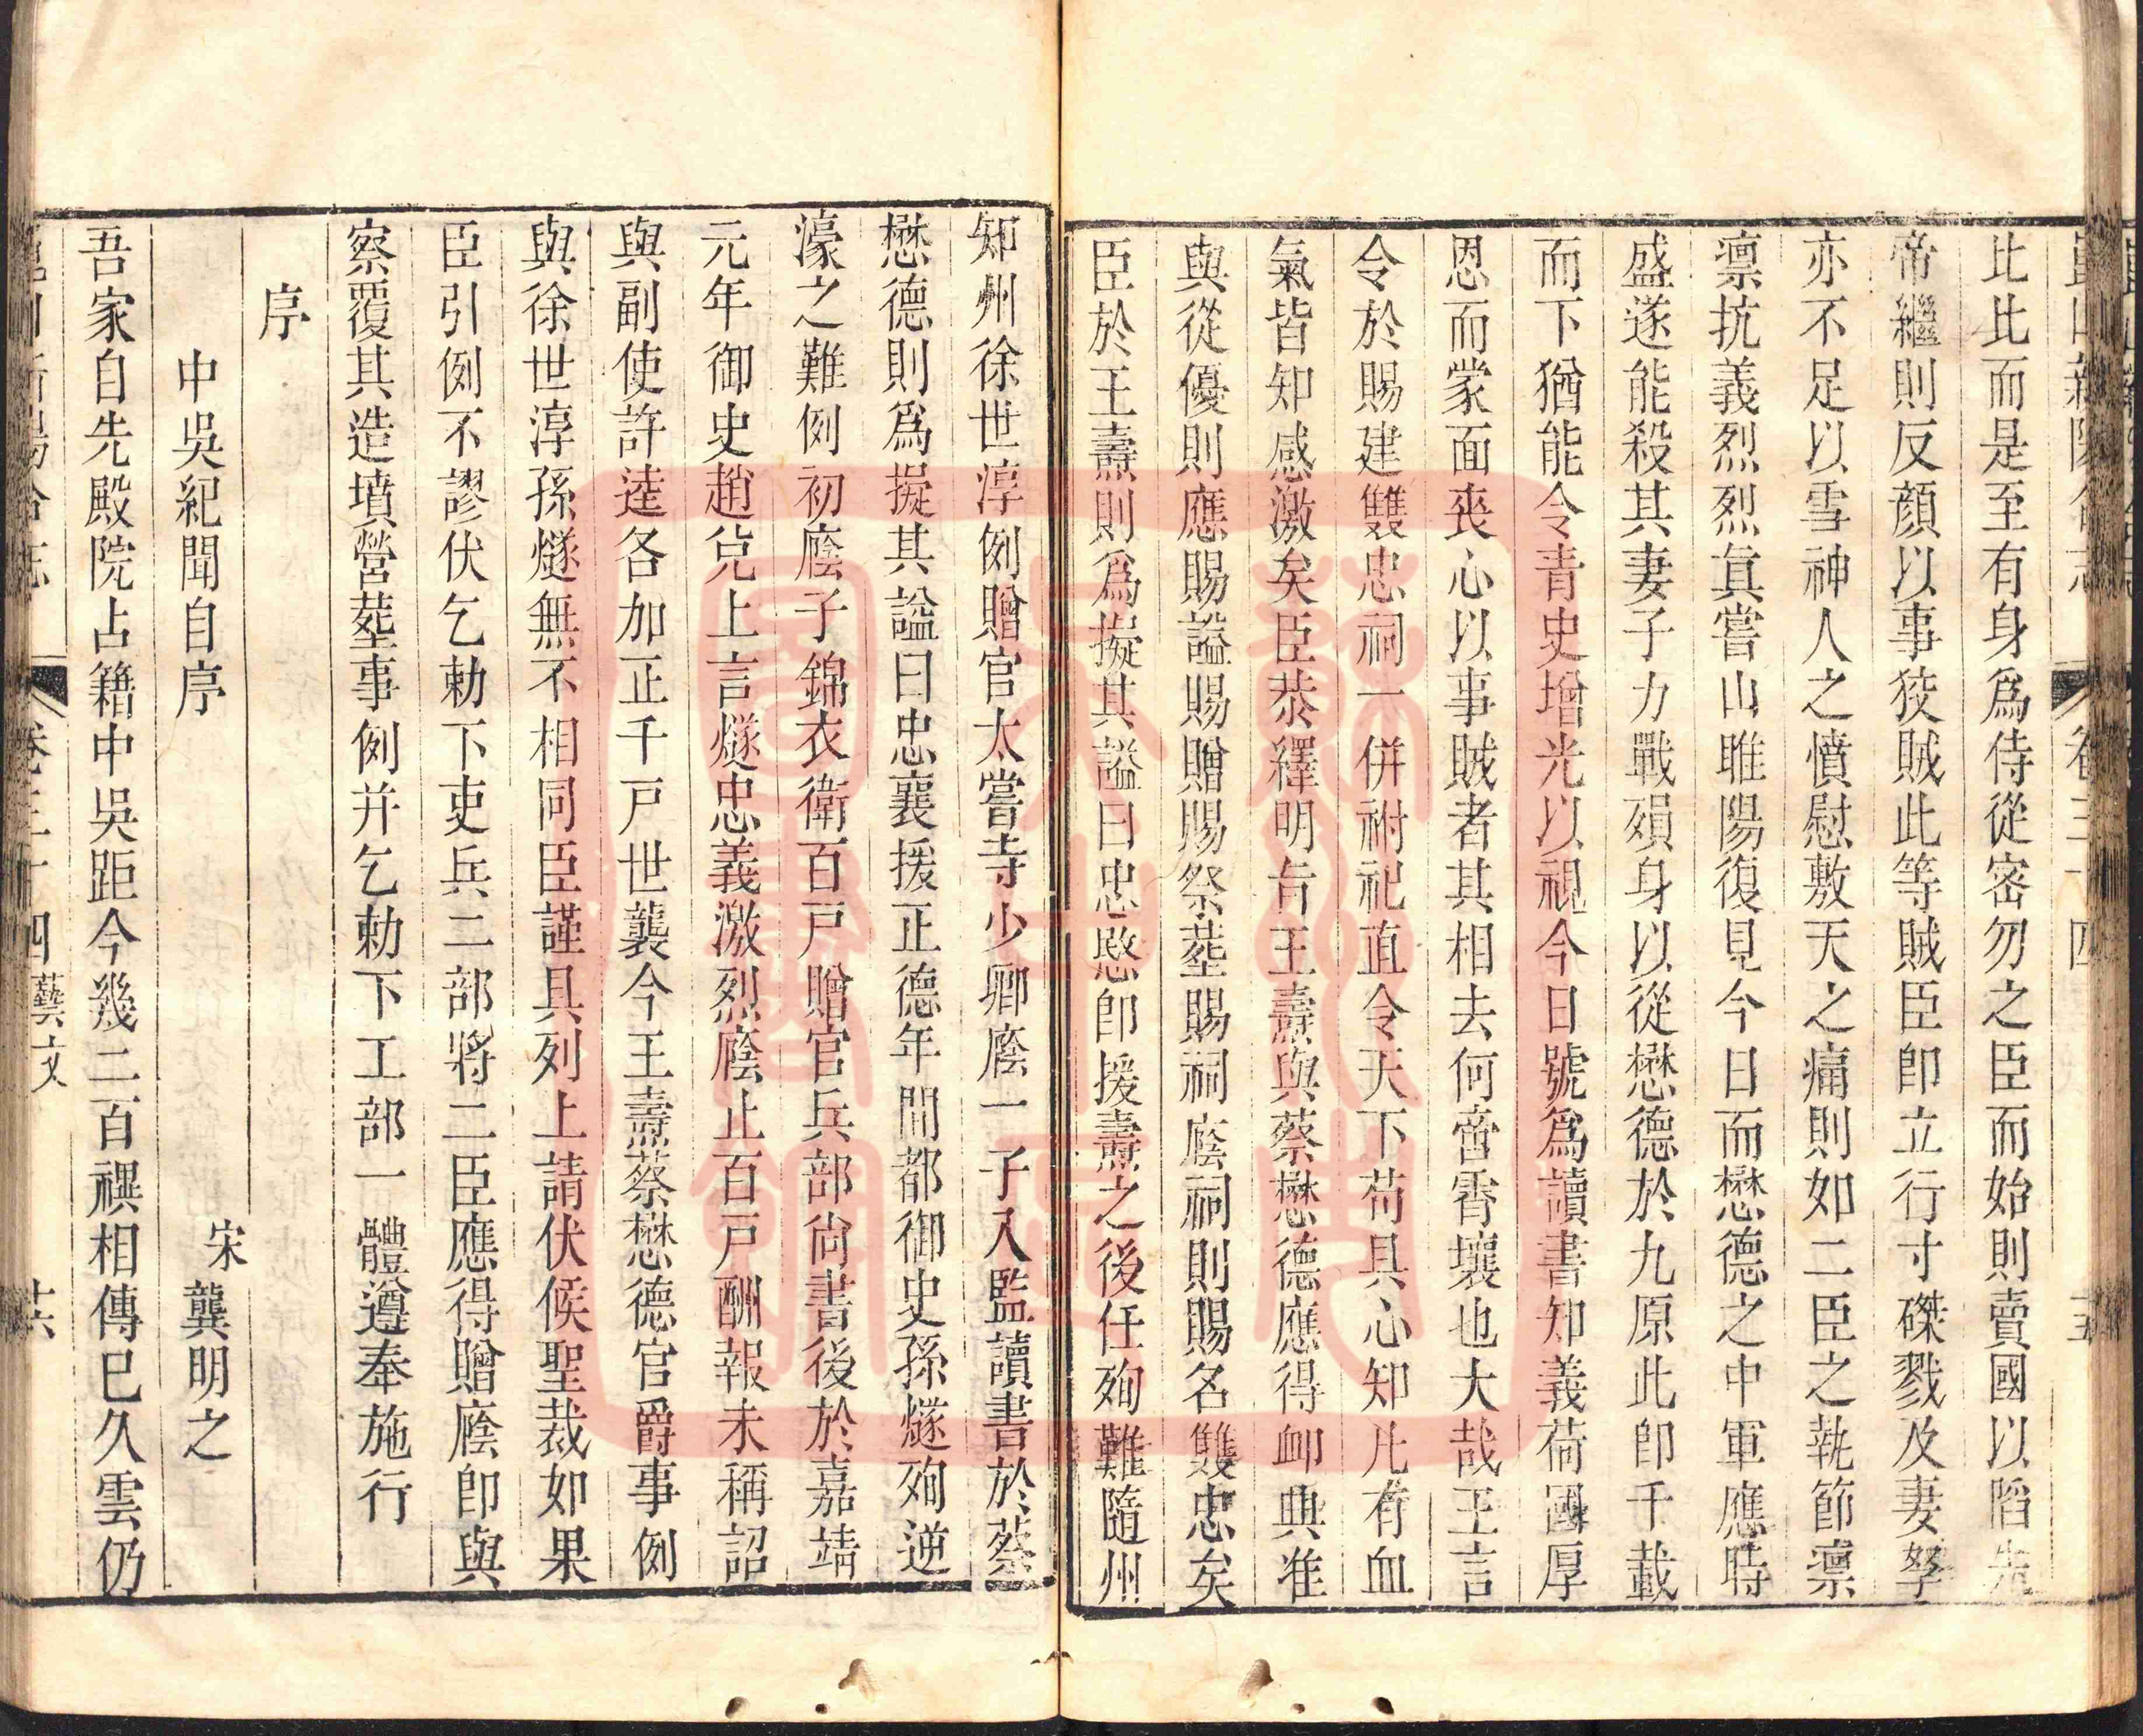 崑山新陽合志　卷三十四　十五
比比而是至有身爲侍從密勿之臣而始則賣國以陷先
帝繼則反顏以事狡賊此等賊臣卽立行寸磔戮及妻孥
亦不足以雪神人之憤慰敷天之痛則如二臣之執節凛
凛抗義烈烈眞嘗山睢陽復見今日而懋德之中軍應時
盛遂能殺其妻子力戰殞身以從懋德於九原此卽千載
而下猶能令青史增光以視今日號爲讀書知義荷國厚
恩而蒙面喪心以事賊者其相去何啻霄壤也大哉王言
令於賜建雙忠祠一併祔祀直令天下苟具心知凡有血
氣皆知感激矣臣恭繹明旨王燾與蔡懋德應得卹典准
與從優則應賜謚賜贈賜祭塟賜祠廕祠則賜名雙忠矣
臣於王燾則爲擬其謚曰忠愍卽援燾之後任殉難隨州
知州徐世淳例贈官太嘗寺少卿廕一子入監讀書於蔡
懋德則爲擬其謚曰忠襄援正德年間都御史孫燧殉逆
濠之難例初廕子錦衣衛百戸贈官兵部尙書後於嘉靖
元年御史趙兊上言燧忠義激烈廕止百戸酬報未稱詔
與副使許逵各加正千戸世襲今王燾蔡懋德官爵事例
與徐世淳孫燧無不相同臣謹具列上請伏候聖裁如果
臣引例不謬伏乞勅下吏兵二部將二臣應得贈廕卽與
察覆其造墳營塟事例并乞勅下工部一體遵奉施行
序
中吳紀聞自序　宋　龔明之
吾家自先殿院占籍中吳距今幾二百禩相傳巳久雲仍
崑山新陽合志　卷三十四　藝文　十六